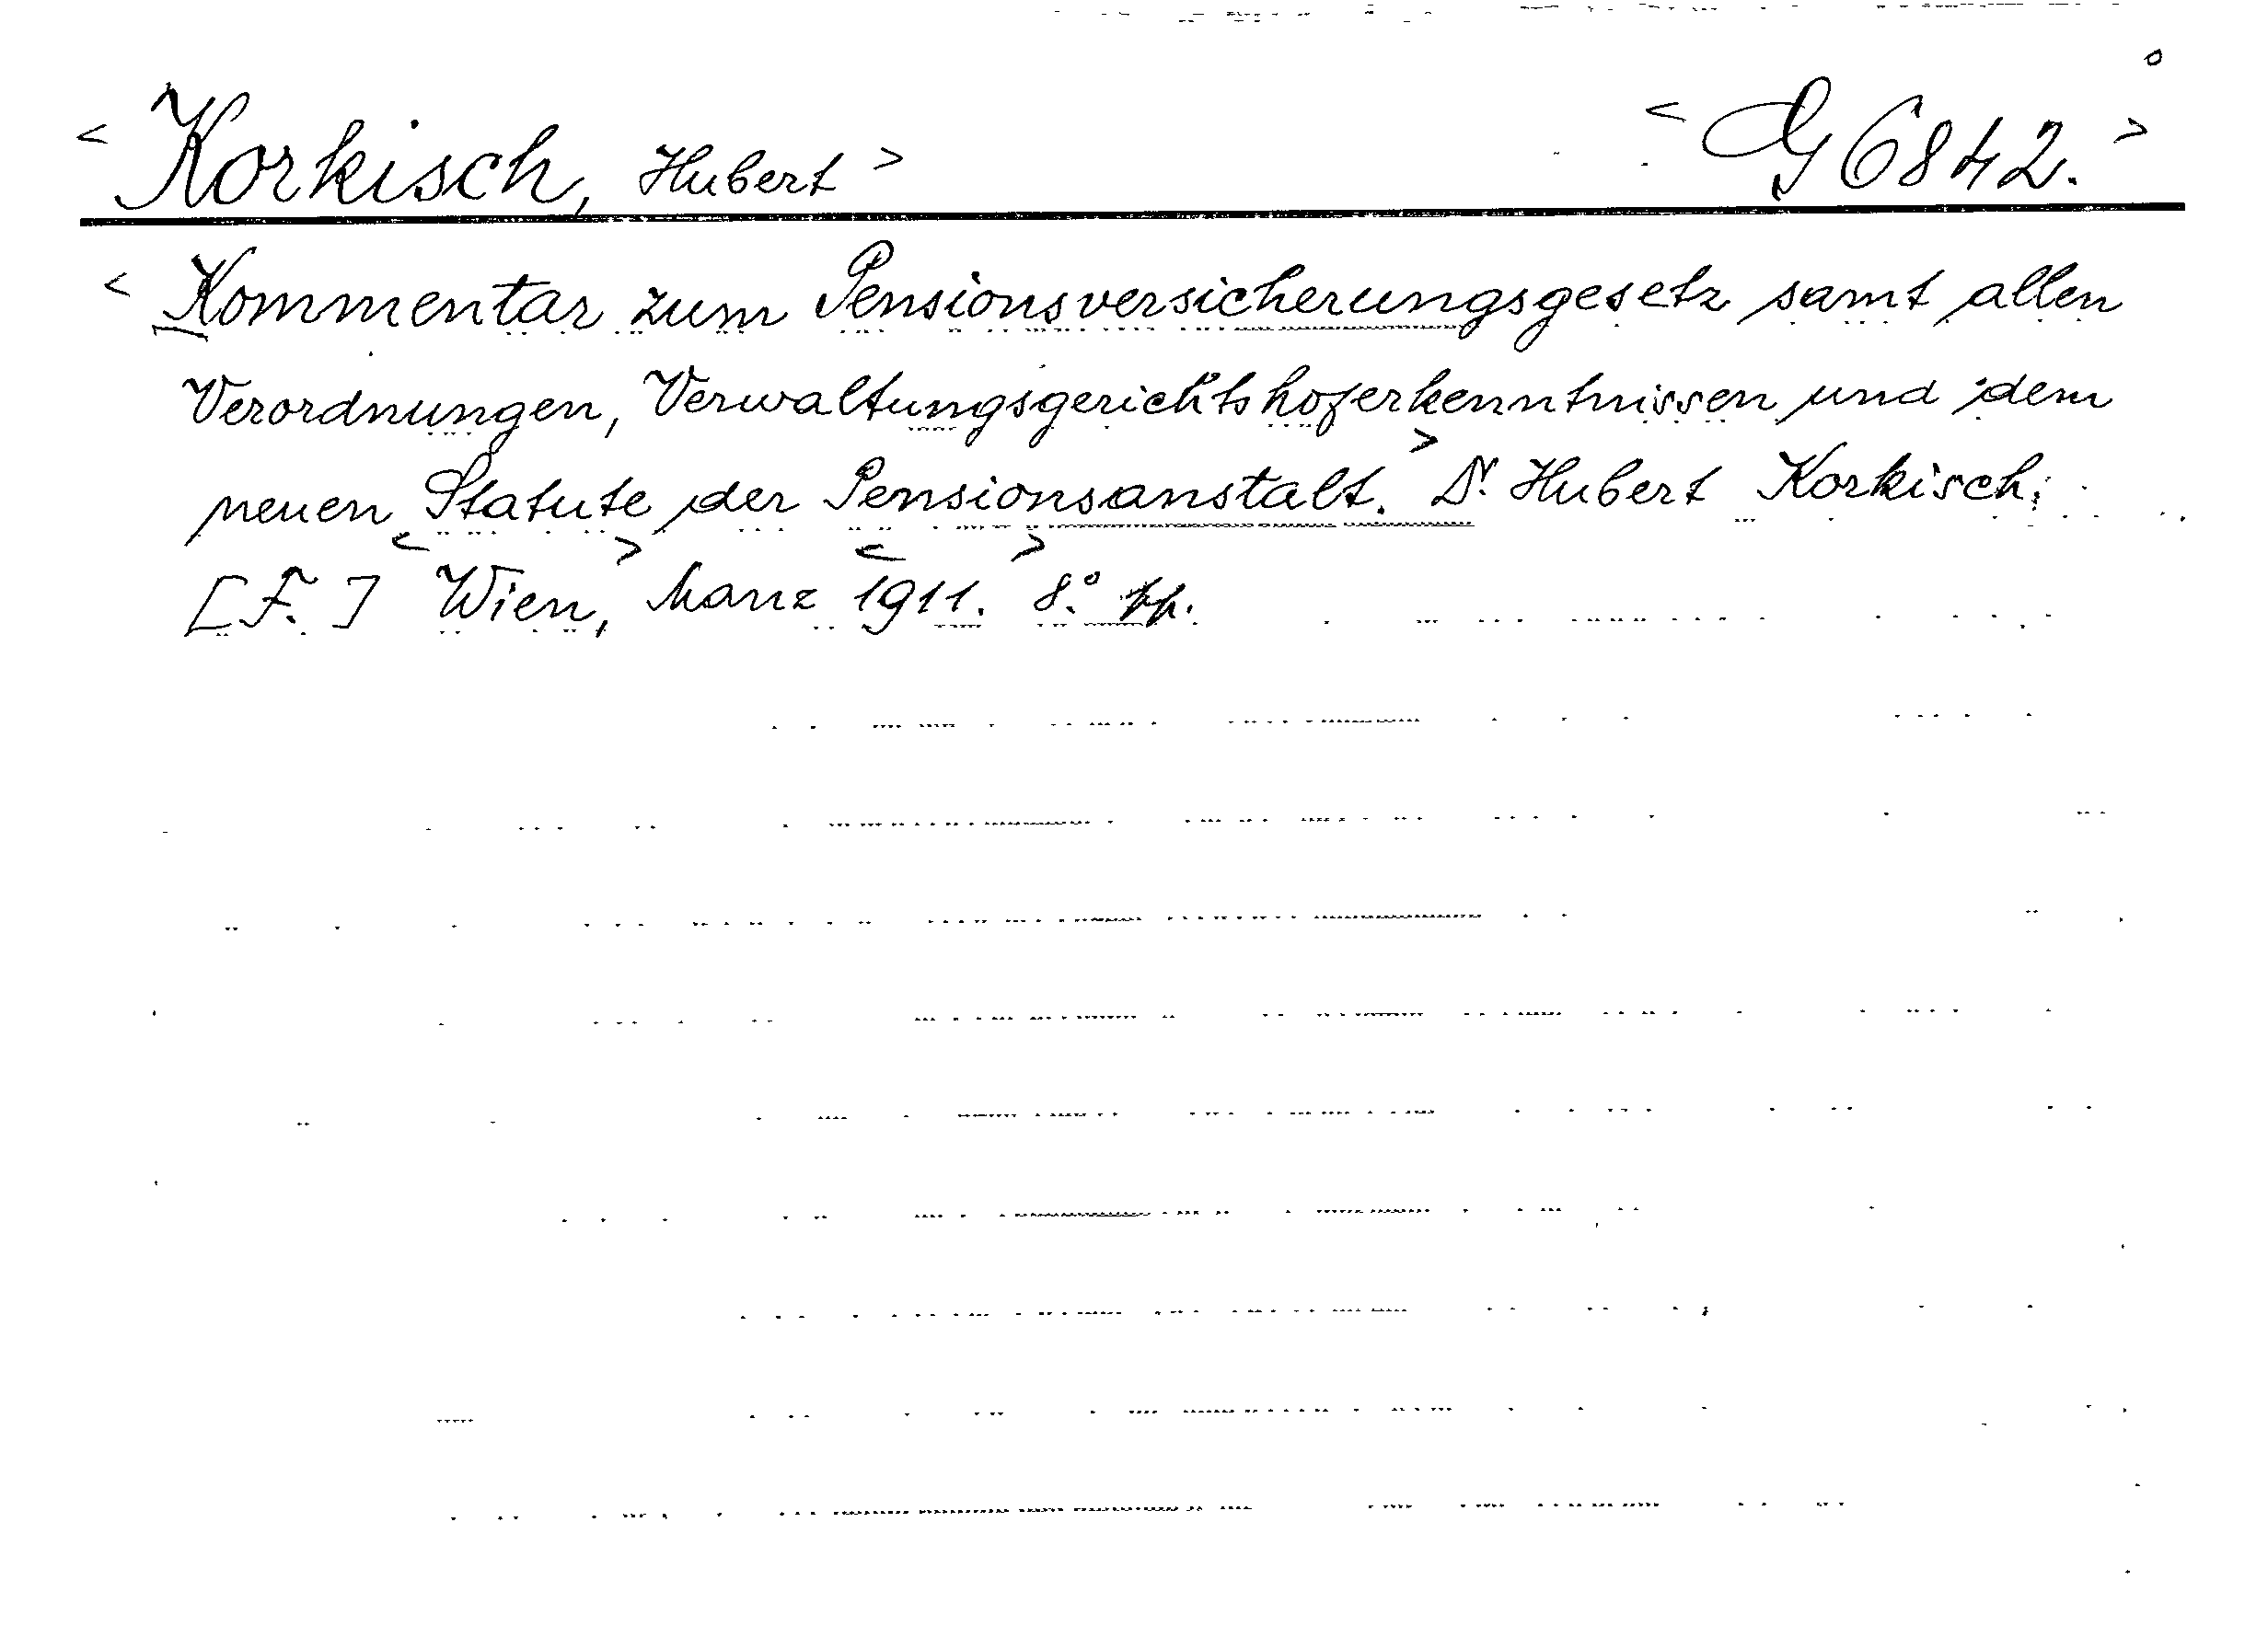 < Korkisch, Hubert > < G 6842. >
< Kommentar zum Pensionsversicherungsgesetz samt allen
Verordnungen, Verwaltungsgerichtshoferkenntnissen und dem
neuen Statute der Pensionsanstalt. > Dr. Hubert Korkisch.
[F.] < Wien, > Manz < 1911. > 8.° pp.